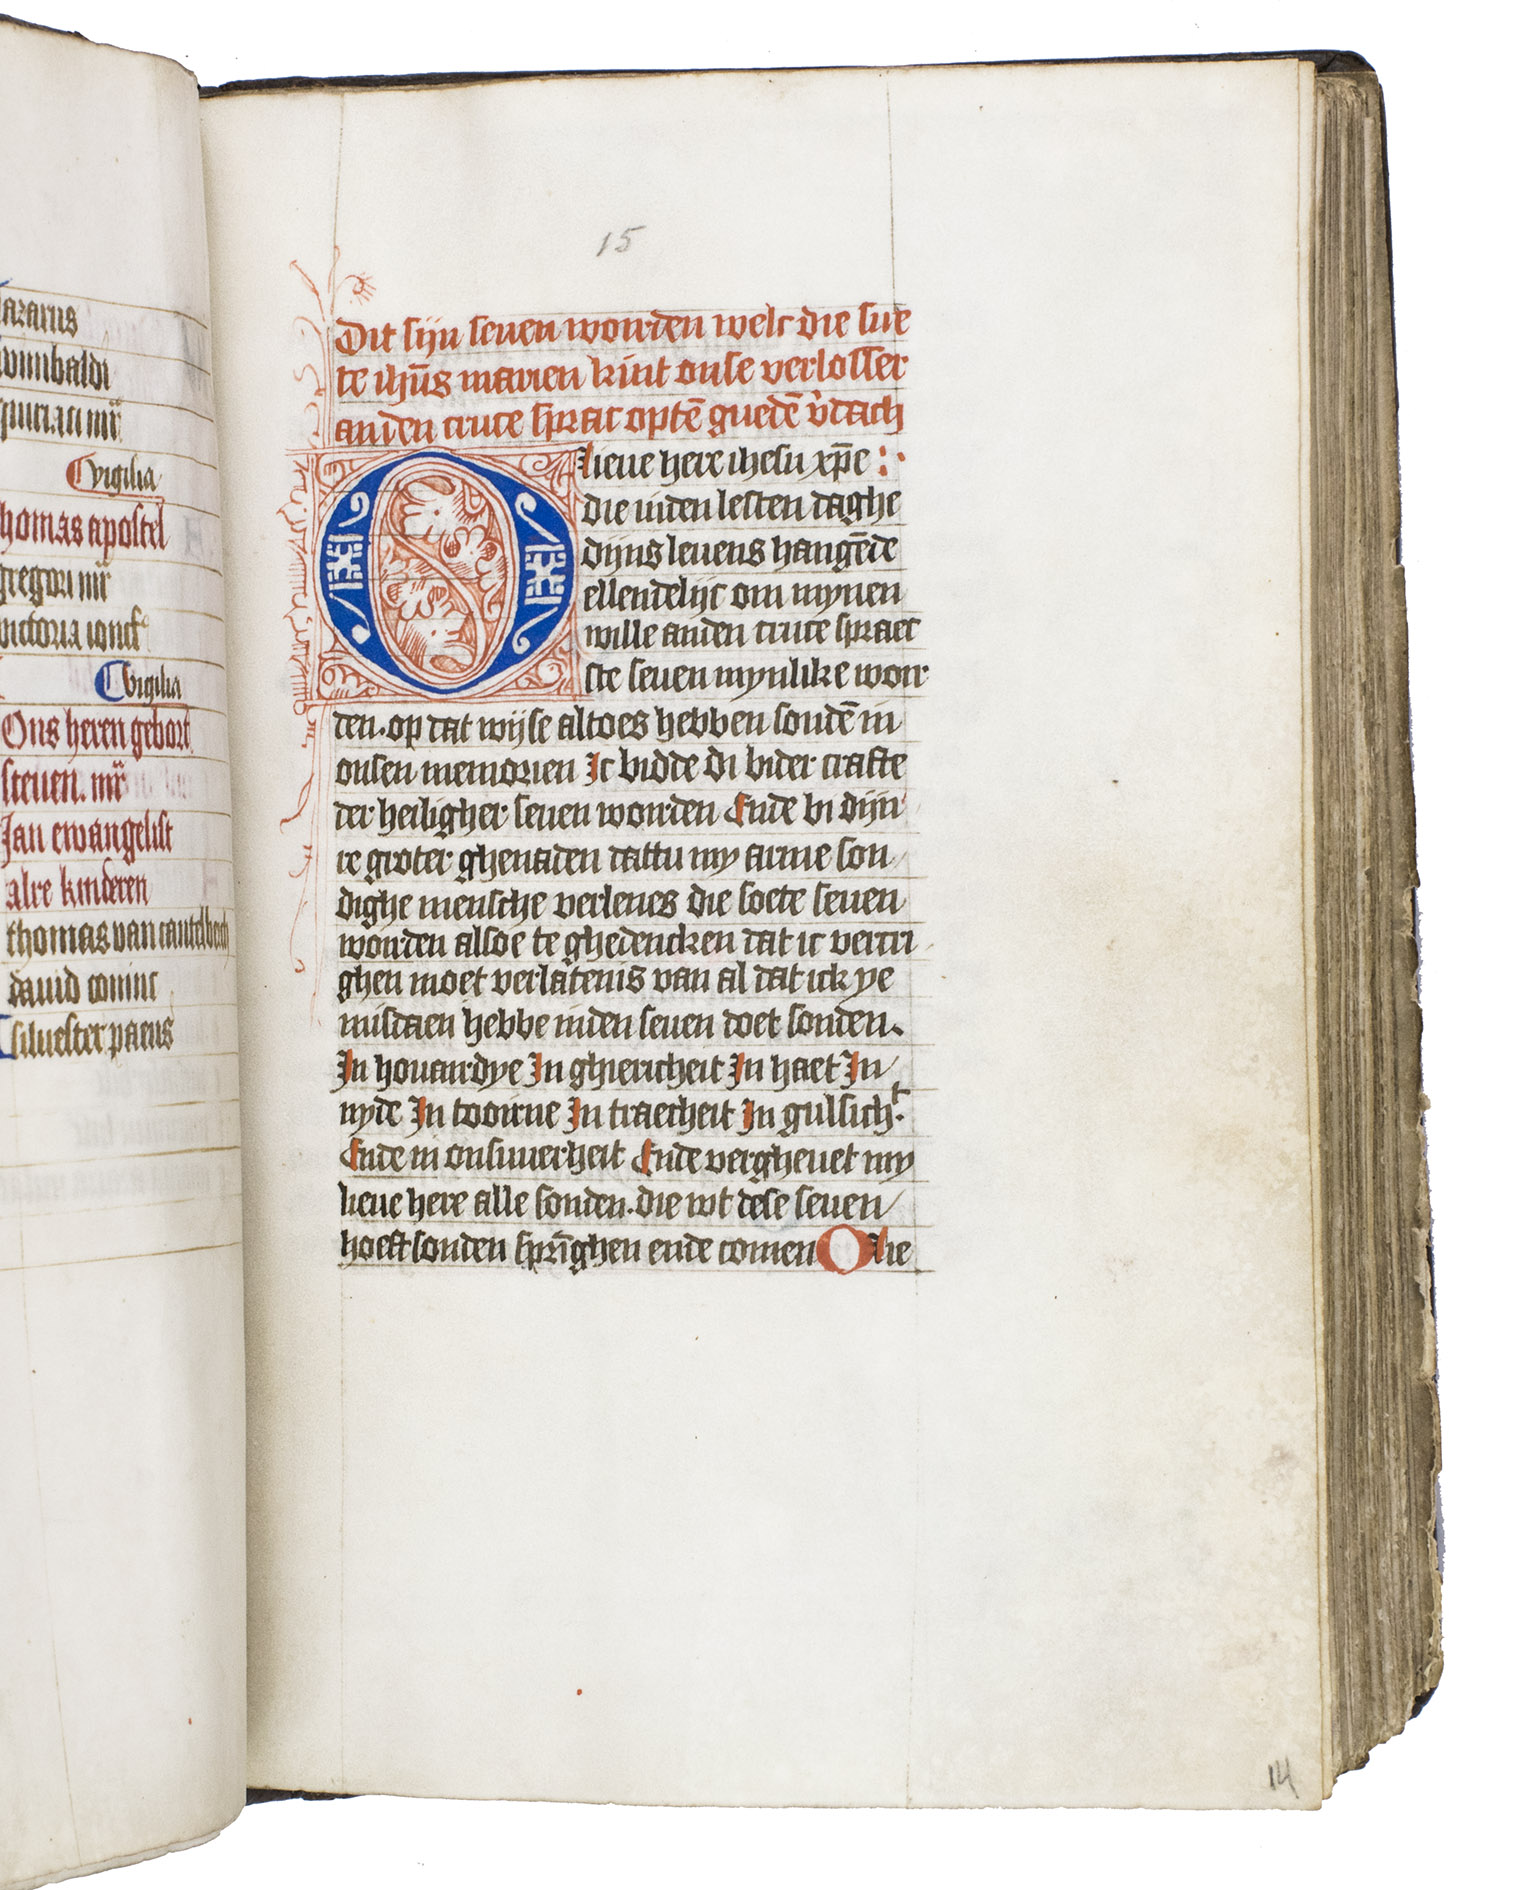 azarus
wunibaldi
quiriaci mr̄
vigilia
homas apostel
gregori mr̄
victoria ioncfͨ
vigilia
Ons heren gebort
steuen. mr̄
Jan ewangelist
alre kinderen
thomas van cantelberch
dauid coninc
siluester paeus
15
Dit sijn seuen worden welc die sue
te ihūs marien kint onse verlosser
anden cruce sprac optē guedē v̓dach
O lieue here ihesu xp̄e :·
die inden lesten daghe
dijns leuens hangēde
ellendelijc om mynen
wille anden cruce spraec
ste seuen mynlike wor
den. op dat wijse altoes hebben soudē in
onsen memorien Ic bidde di bider crafte
der heiligher seuen worden Ende bi dijn
re groter ghenaden dattu my arme son
dighe mensche verlenes die soete seuen
worden alsoe te ghedencken dat ic vercri
ghen moet verlatenis van al dat ick ye
misdaen hebbe inden seuen doet sonden.
In houardye In ghiericheit In haet In
nyde In toorne In traecheit In gulsichᵗ.
Ende in onsuuerheit Ende vergheuet my
lieue here alle sonden. die wt dese seuen
hoeft sonden sprīghen ende comen O die
14